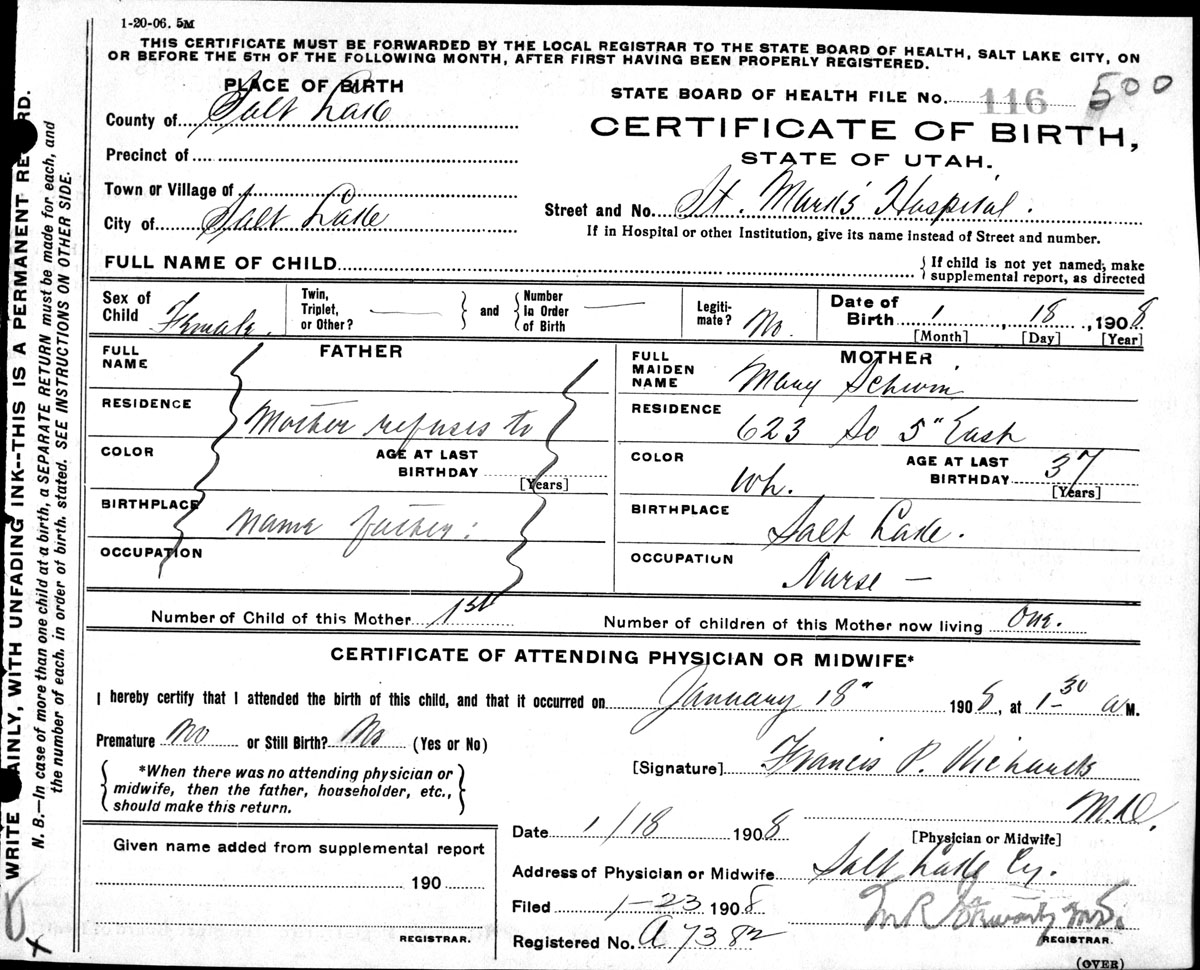 1-20-06. 5M
THIS CERTIFICATE MUST BE FORWARDED BY THE LOCAL REGISTRAR TO THE STATE BOARD OF HEALTH, SALT LAKE CITY, ON
OR BEFORE THE 5TH OF THE FOLLOWING MONTH, AFTER FIRST HAVING BEEN PROPERLY REGISTERED.
PLACE OF BIRTH
County of Salt Lake
Precinct of
Town or Village of
City of Salt Lake
STATE BOARD OF HEALTH FILE No. 116 500
CERTIFICATE OF BIRTH,
STATE OF UTAH.
Street and No. St. Mark's Hospital.
If in Hospital or other Institution, give its name instead of Street and number.
FULL NAME OF CHILD
{ If child is not yet named, make
supplemental report, as directed
Sex of Child Female.
Twin, Triplet, or Other? —
and
Number In Order of Birth —
Legiti-mate? No.
Date of Birth 1, 18, 1908
[Month] [Day] [Year]
FATHER
FULL NAME
RESIDENCE
Mother refuses to
COLOR
AGE AT LAST BIRTHDAY
[Years]
BIRTHPLACE
name father:
OCCUPATION
MOTHER
FULL MAIDEN NAME Mary Schwin
RESIDENCE 623 So 5" East
COLOR Wh.
AGE AT LAST BIRTHDAY 37
[Years]
BIRTHPLACE Salt Lake.
OCCUPATION Nurse —
Number of Child of this Mother 1st
Number of children of this Mother now living One.
CERTIFICATE OF ATTENDING PHYSICIAN OR MIDWIFE*
I hereby certify that I attended the birth of this child, and that it occurred on January 18" 1908, at 1 30 a M.
Premature No or Still Birth? No (Yes or No)
*When there was no attending physician or
midwife, then the father, householder, etc.,
should make this return.
[Signature] Francis P. Richards
M.D.
[Physician or Midwife]
Date 1/18 1908
Address of Physician or Midwife Salt Lake Cy.
Filed 1-23 1908
Registered No. A 7382
M.D.
REGISTRAR.
(OVER)
Given name added from supplemental report
190
REGISTRAR.
WRITE AINLY, WITH UNFADING INK--THIS IS A PERMANENT RE RD.
N. B.—In case of more than one child at a birth, a SEPARATE RETURN must be made for each, and
the number of each, in order of birth, stated. SEE INSTRUCTIONS ON OTHER SIDE.